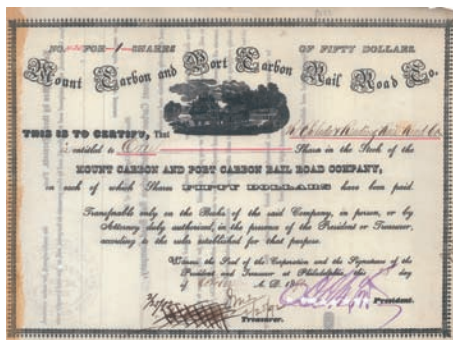 FOR 1 SHARES OF FIFTY DOLLARS.
Mount Carbon and Port Carbon Rail Road Co.
THIS IS TO CERTIFY, That
is entitled to One Share in the Stock of the
MOUNT CARBON AND PORT CARBON RAIL ROAD COMPANY,
on each of which Shares FIFTY DOLLARS have been paid.
Transferable only on the Books of the said Company, in person, or by
Attorney duly authorized, in the presence of the President or Treasurer,
according to the rules established for that purpose.
Witness the Seal of the Corporation and the Signatures of the
President and Treasurer at Philadelphia, this day
of A. D.
President.
Treasurer.